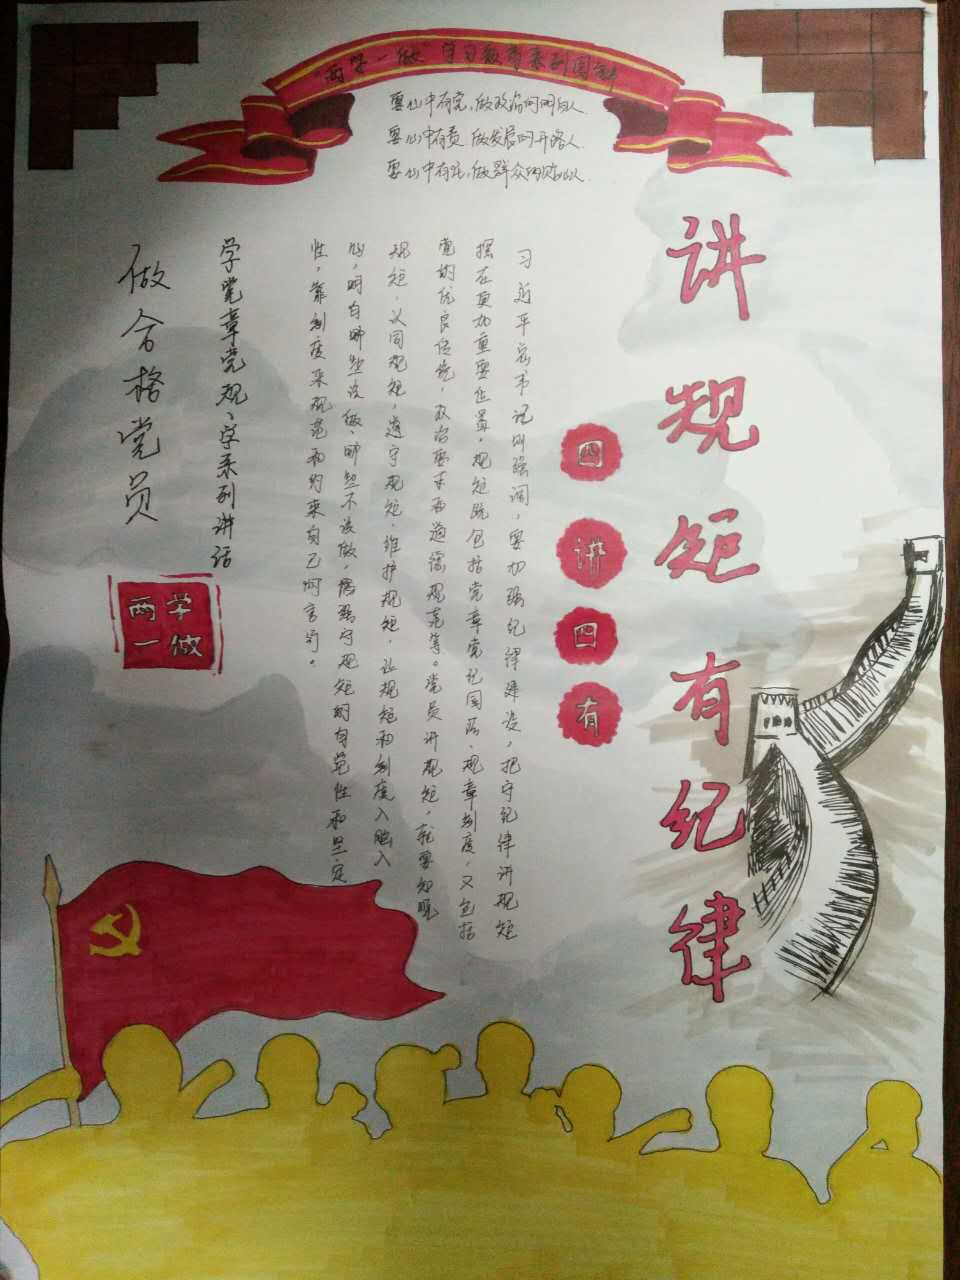 "两学一做"学习教育系列图解
要心中有党,做政治的明白人.
要心中有责,做发展的开路人.
要心中有民,做群众的贴心人.
讲规矩有纪律
四讲四有
习近平总书记则强调,要加强纪律建设,把守纪律讲规矩
摆在更加重要位置。规矩既包括党章党纪国法、规章制度,又包括
党的优良传统,政治要求和道德规范等。党员讲规矩,就要知晓
规矩、认同规矩,遵守规矩、维护规矩,让规矩和制度入脑入
心,明白哪些该做、哪些不该做,增强守规矩的自觉性和坚定
性,靠制度来规范和约束自己的言行。
学党章党规、学系列讲话
做合格党员
两学
一做